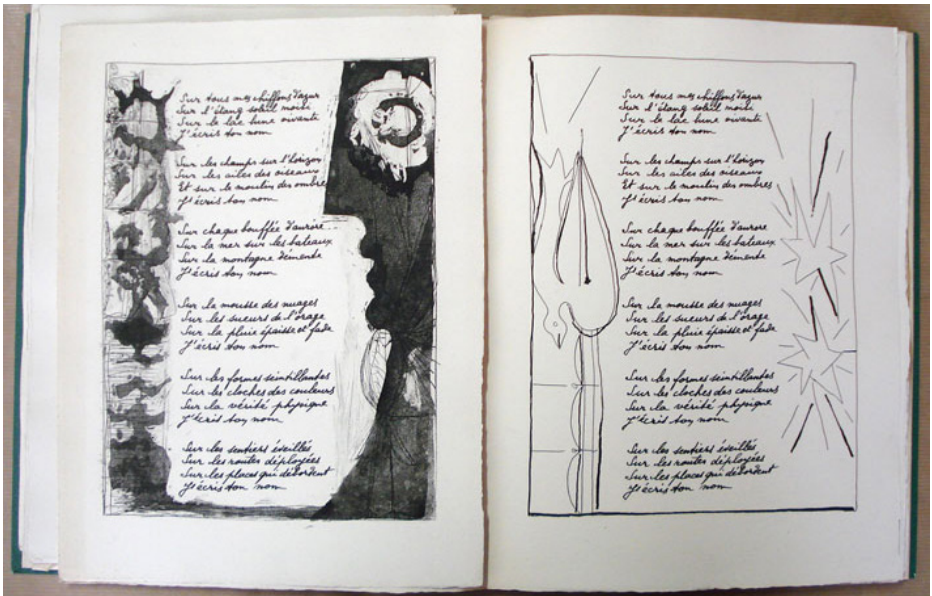 Sur tous mes chiffons d'azur
Sur l'étang soleil moisi
Sur le lac lune vivante
J'écris ton nom
Sur les champs sur l'horizon
Sur les ailes des oiseaux
Et sur le moulin des ombres
J'écris ton nom
Sur chaque bouffée d'aurore
Sur la mer sur les bateaux
Sur la montagne démente
J'écris ton nom
Sur la mousse des nuages
Sur les sueurs de l'orage
Sur la pluie épaisse et fade
J'écris ton nom
Sur les formes scintillantes
Sur les cloches des couleurs
Sur la vérité physique
J'écris ton nom
Sur les sentiers éveillés
Sur les routes déployées
Sur les places qui débordent
J'écris ton nom
Sur tous mes chiffons d'azur
Sur l'étang soleil moisi
Sur le lac lune vivante
J'écris ton nom
Sur les champs sur l'horizon
Sur les ailes des oiseaux
Et sur le moulin des ombres
J'écris ton nom
Sur chaque bouffée d'aurore
Sur la mer sur les bateaux
Sur la montagne démente
J'écris ton nom
Sur la mousse des nuages
Sur les sueurs de l'orage
Sur la pluie épaisse et fade
J'écris ton nom
Sur les formes scintillantes
Sur les cloches des couleurs
Sur la vérité physique
J'écris ton nom
Sur les sentiers éveillés
Sur les routes déployées
Sur les places qui débordent
J'écris ton nom